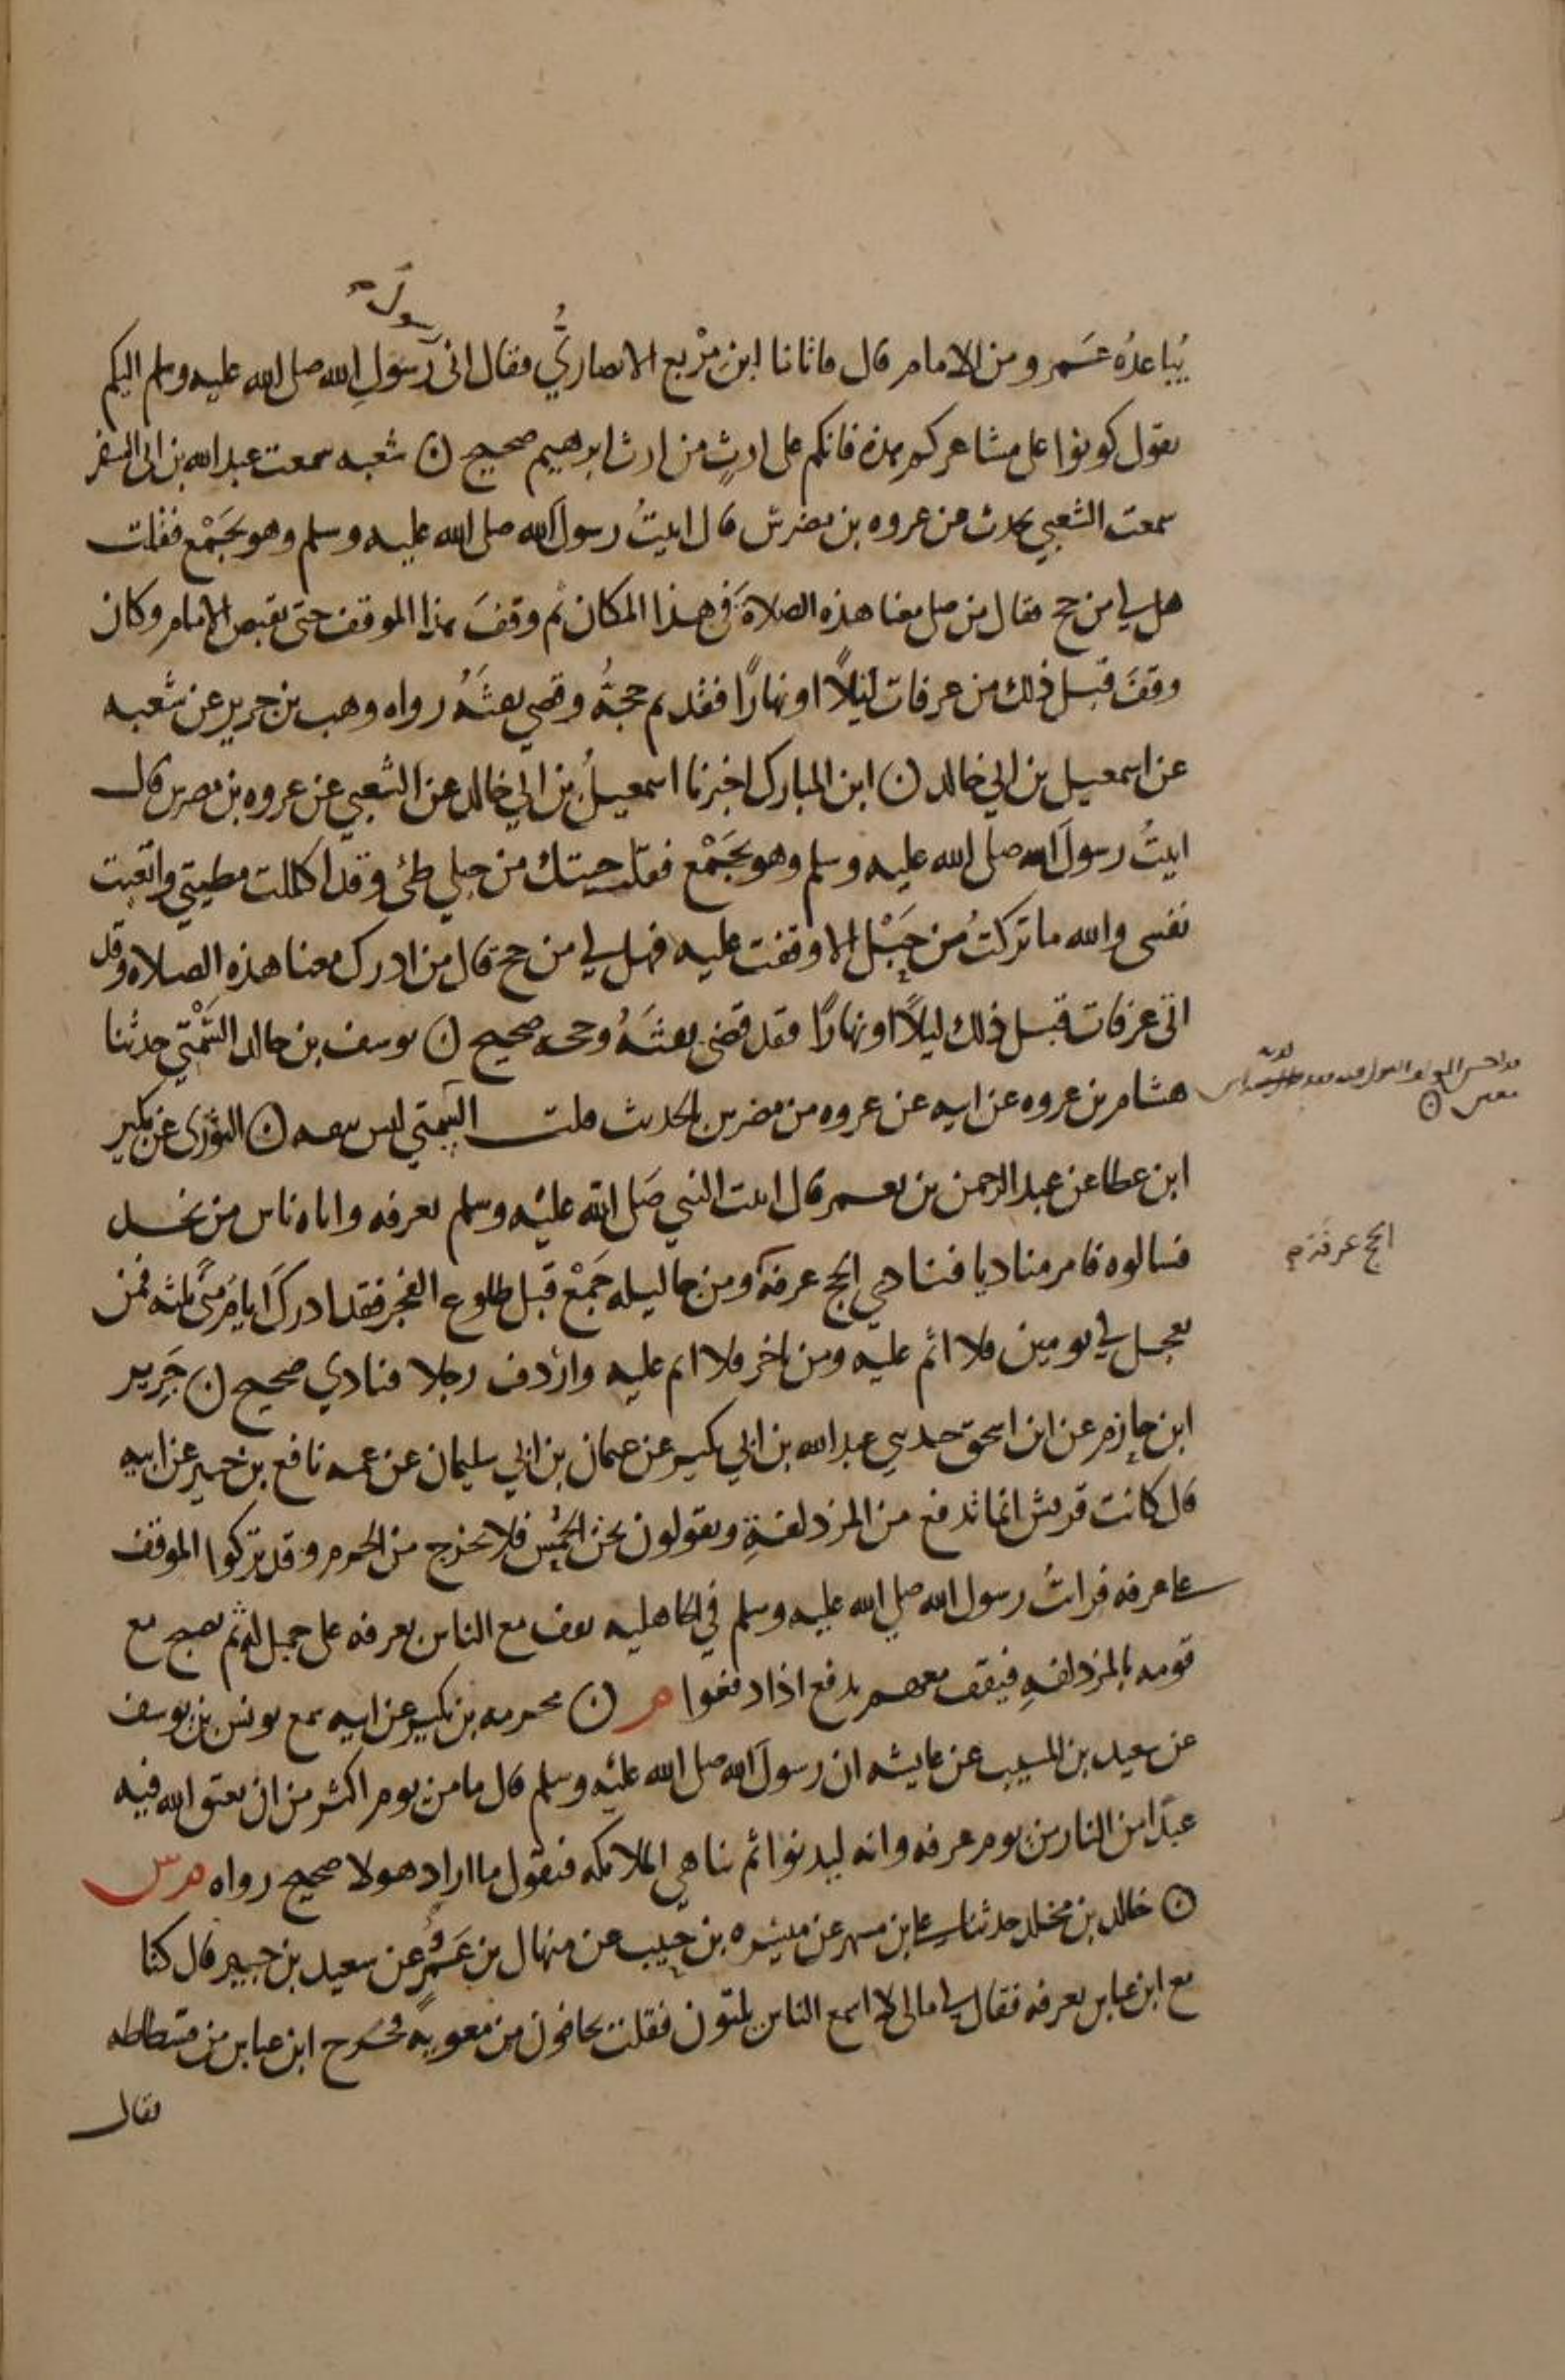 يُباعدُه عَمرو من الامام قال فاتانا ابن مِرْبع الانصاريُّ فقال انى رَسُولِ الله صلى الله عليه وسلم اليكم
رسول
يقول كونوا على مشاعركم هذه فانكم على ارثٍ من ارث ابرهيم صحيح ن شعبه سمعت عبد الله بن ابى السفر
سمعت الشعبي يحدث عن عروه بن مضرس قال اتيتُ رسولَ الله صلى الله عليه وسلم وهو بجَمْع فقلت
هل لي من حج فقال من صلى معنا هذه الصلاةَ في هذا المكان ثم وقفَ هذا الموقف حتى يفيض الامام وكان
وقفَ قبل ذلك من عرفات ليلاً او نهارًا فقد تم حجهُ وقضي تفثَهُ رواه وهب بن جرير عن شعبه
عن اسمعيل بن ابي خالد ن ابن المبارك اخبرنا اسمعيلُ بن ابي خالد عن الشعبي عن عروه بن مضرس قال
اتيتُ رسولَ الله صلى الله عليه وسلم وهو بجَمْع فقلت جيتك من جبلي طئ وقد اكللت مطيتي واتعبت
نفسى والله ما تركتُ من حَبْل الا وقفت عليه فهل لي من حج قال من ادرك معنا هذه الصلاه وقد
اتى عرفات قبل ذلك ليلاً او نهارًا فقد قضى تفثَهُ وحجه صحيح ن يوسف بن خالد السَّمْتي حدثنا
هشام بن عروه عن ابيه عن عروه بن مضرس بالحديث قلت السمتي ليس بثقه ن الثورى عن بكير
ابن عطا عن عبد الرحمن بن يعمر قال اتيت النبي صَلى الله عليْه وسلم بعرفه واتاه ناس من نجد
فسالوه فامر مناديا فنادي الحج عرفهَ ومن جا ليله جَمْع قبل طلوع الفجر فقد ادركَ ايام مِنًى ثلثه فمن
تعجل في يومين فلا اثم عليه ومن تاخر فلا اثم عليه واَرْدف رجلا فنادي صحيح ن جَرِير
الحج عرفه م
ابن حازم عن ابن اسحق حدثني عبد الله بن ابي بكير عن عثمان بن ابي سليمان عن عمه نافع بن جبير عن ابيه
قال كانت قريش انما تدفع من المزدلفةِ ويقولون نحن الحُمْس فلا نخرج من الحرم وقد تركوا الموقف
على عرفه فراتُ رسول الله صلي الله عليه وسلم في الجاهليه يقف مع الناس بعرفه على جمل له ثم يصبح مع
قومه بالمزدلفهِ فيقف معهم يدفع اذا دفعوا م ن مخرمه بن بكير عن ابيه سمع يونس بن يوسف
عن سعيد بن المسيب عن عايشه ان رسولَ الله صلى الله عليْه وسلم قال ما من يوم اكثر من ان يعتق الله فيه
عبدًا من النار من يوم عرفه وانه ليدنوا ثم يباهي الملايكه فيقول ما اراد هولا صحيح رواه م س
ن خالد بن مخلد حدثنا علي بن مسهر عن ميسره بن حبيب عن منهال بن عَمْرٍو عن سعيد بن جبير قال كنا
مع ابن عباس بعرفه فقال لي ما لى لا اسمع الناس يلبون فقلت يخافون من معويه فخرج ابن عباس من فسطاطه
فقال